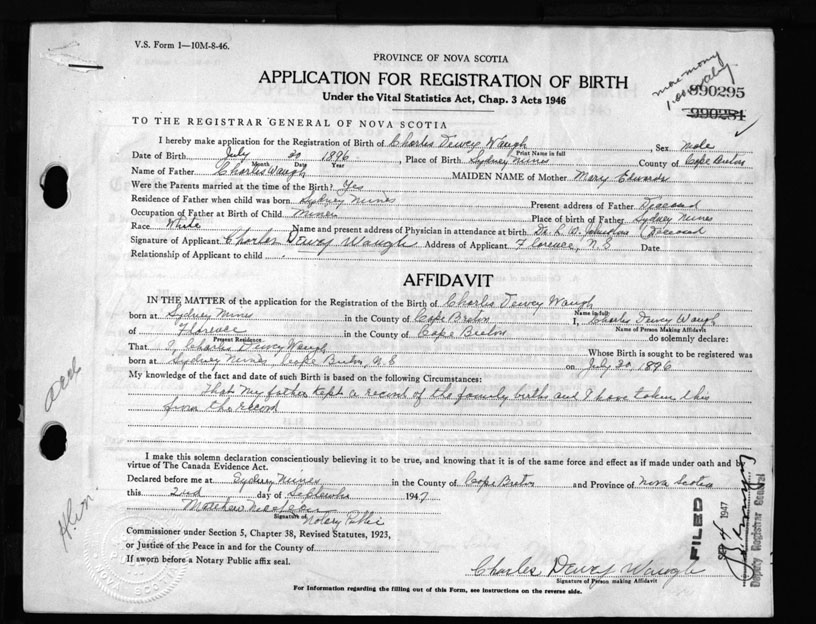 V.S. Form 1—10M-8-46.
PROVINCE OF NOVA SCOTIA
APPLICATION FOR REGISTRATION OF BIRTH
Under the Vital Statistics Act, Chap. 3 Acts 1946
990295
990281
TO THE REGISTRAR GENERAL OF NOVA SCOTIA
I hereby make application for the Registration of Birth of Charles Dewey Waugh Sex Male
Print Name in full
Date of Birth July 20 1896, Place of Birth Sydney Mines County of Cape Breton
Month Date Year
Name of Father Charles Waugh MAIDEN NAME of Mother Mary Edwards
Were the Parents married at the time of the Birth? Yes
Residence of Father when child was born Sydney Mines Present address of Father Deceased
Occupation of Father at Birth of Child Miner Place of birth of Father Sydney Mines
Race White Name and present address of Physician in attendance at birth Dr. L. W. Johnstone (Deceased
Signature of Applicant Charles Dewey Waugh Address of Applicant Florence, N.S Date
Relationship of Applicant to child
AFFIDAVIT
IN THE MATTER of the application for the Registration of the Birth of Charles Dewey Waugh
Name in full
born at Sydney Mines in the County of Cape Breton I, Charles Dewey Waugh
Name of Person Making Affidavit
of Florence in the County of Cape Breton do solemnly declare:
Present Residence
That I, Charles Dewey Waugh Whose Birth is sought to be registered was
born at Sydney Mines, Cape Breton, N.S on July 20, 1896
My knowledge of the fact and date of such Birth is based on the following Circumstances:
That my father kept a record of the family births and I have taken this
from the record
I make this solemn declaration conscientiously believing it to be true, and knowing that it is of the same force and effect as if made under oath and by
virtue of The Canada Evidence Act.
Declared before me at Sydney Mines in the County of Cape Breton and Province of Nova Scotia
this 2nd day of September 1947
Matthew
Signature of Notary Public
Commissioner under Section 5, Chapter 38, Revised Statutes, 1923,
or Justice of the Peace in and for the County of
If sworn before a Notary Public affix seal.
Charles Dewey Waugh
Signature of Person making Affidavit
For Information regarding the filling out of this Form, see instructions on the reverse side.
FILED
SEP 4 1947
Deputy Registrar General